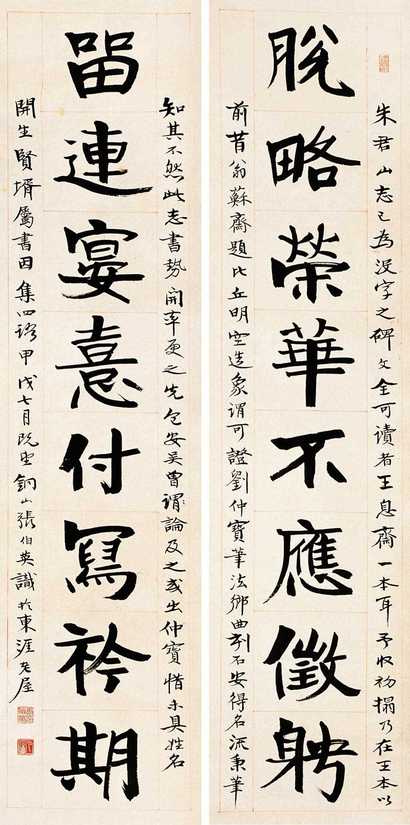 朱君山志已為沒字之碑文全可讀者王息齋一本耳予收初搨乃在王本以
脫略榮華不應徵聘
前昔翁蘇齋題比丘明空造象謂可證劉仲寶筆法鄉曲刻石安得名流秉筆
知其不然此志書勢開率更之先包安吳曾謂論及之或出仲寶惜未具姓名
畱連宴憙付寫衿期
開生賢壻屬書因集四語甲戌七月既望銅山張伯英識於東涯老屋